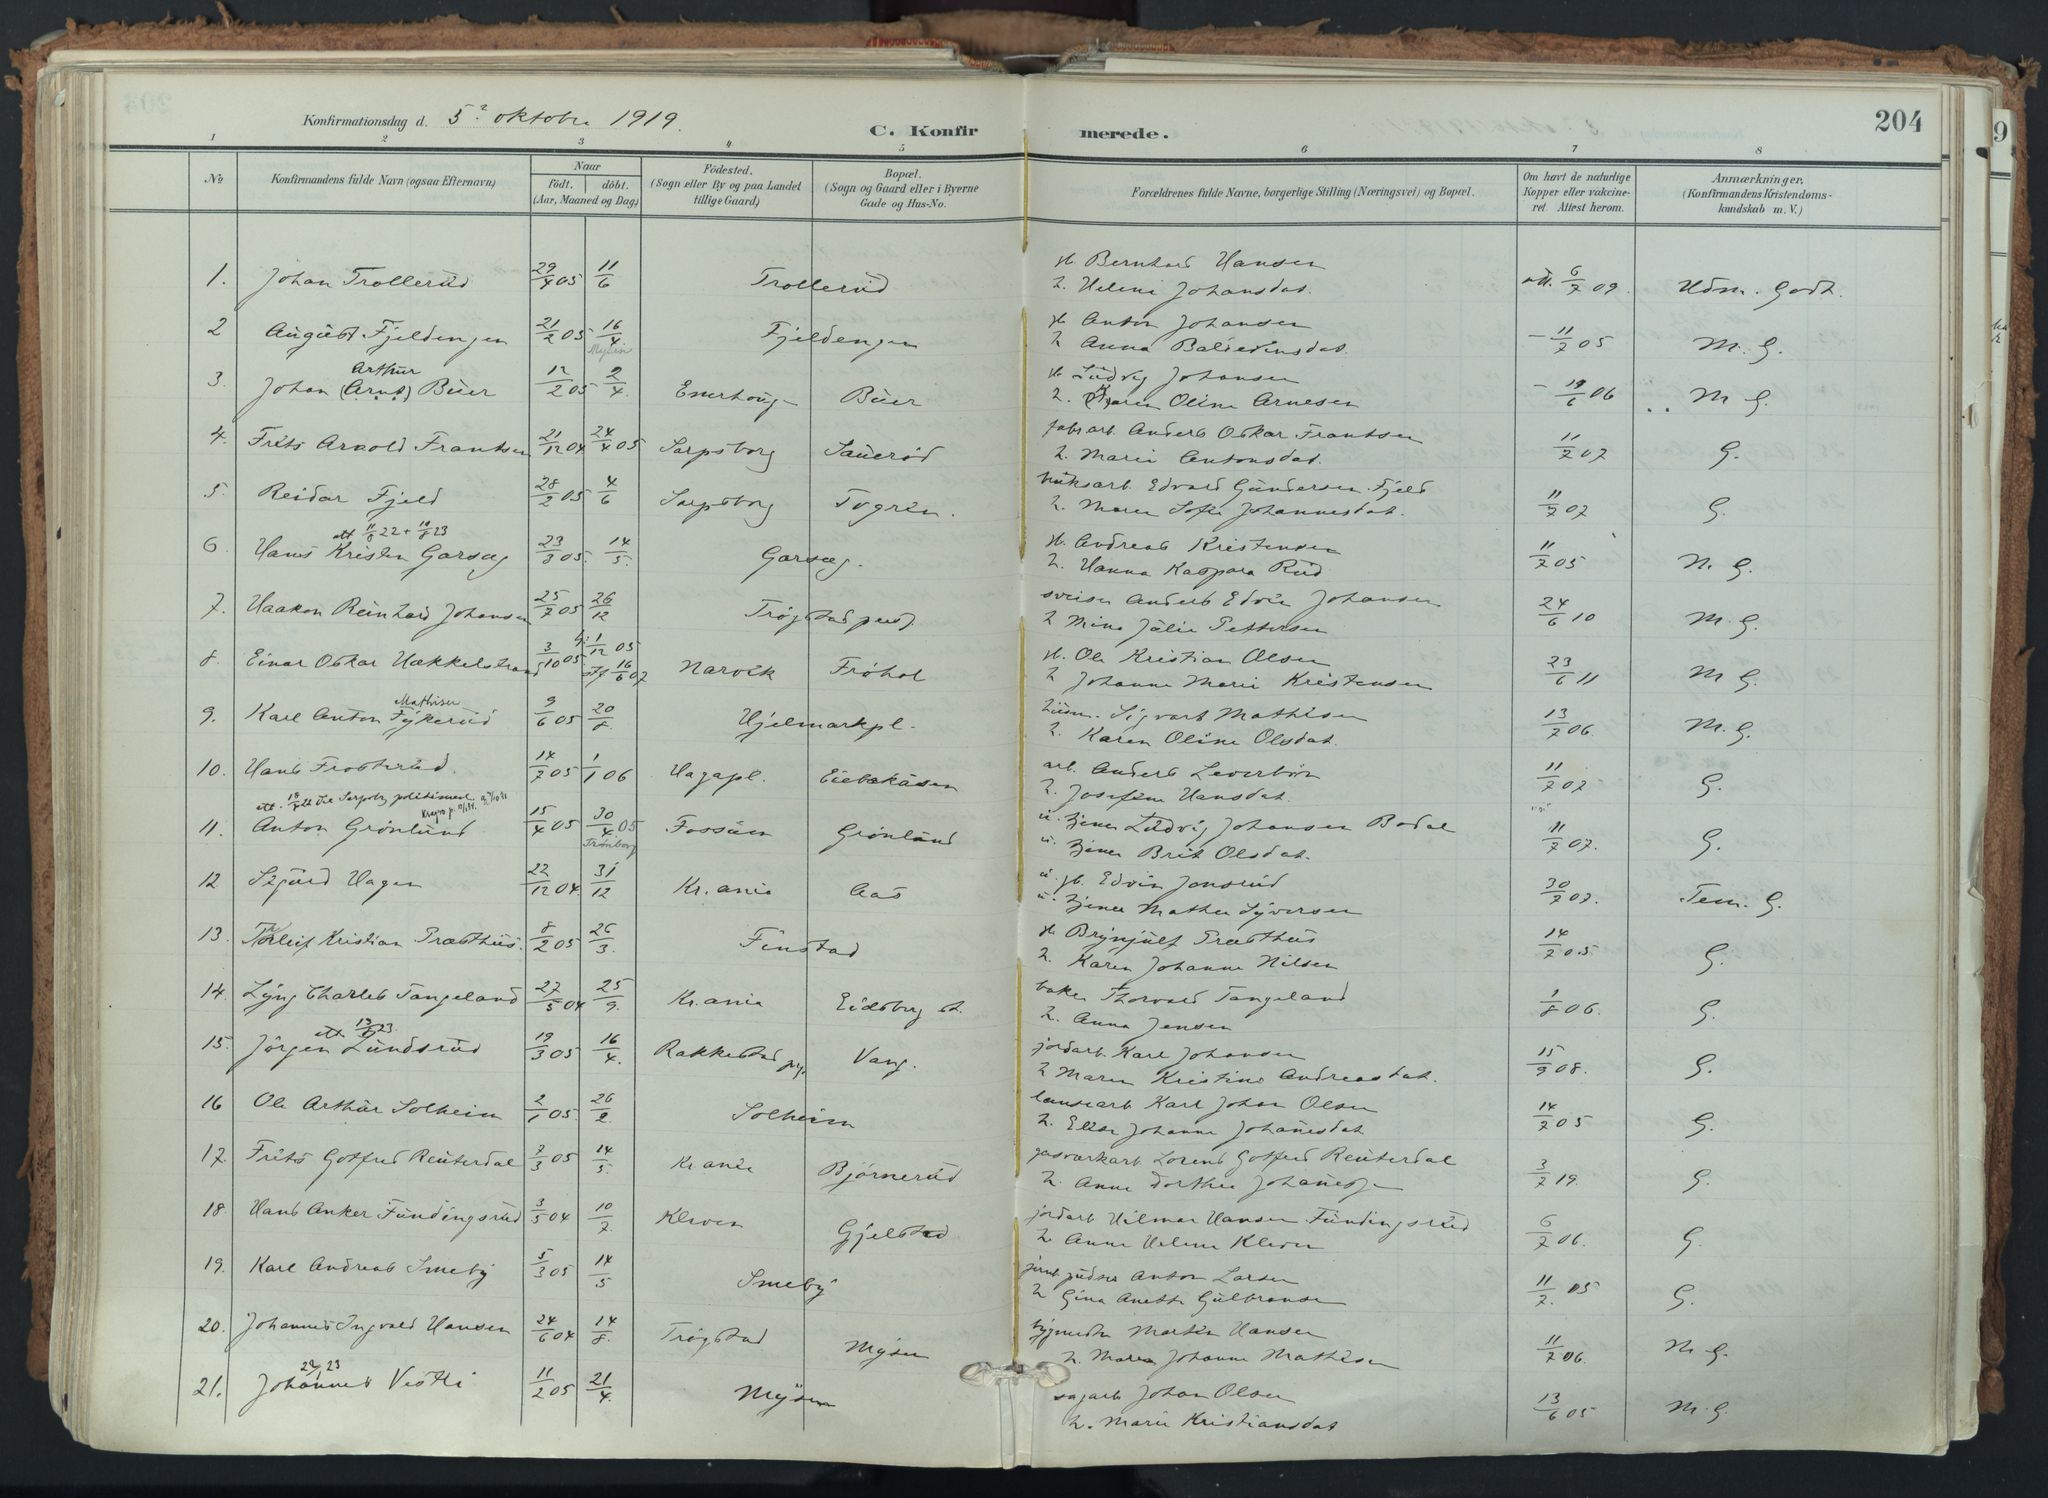 204
Konfirmationsdag d. 5. oktober 1919.
C. Konfirmerede.
1 2 3 4 5 6 7 8
No Konfirmandens fulde Navn (ogsaa Efternavn) Naar födt. döbt. (Aar, Maaned og Dag) Födested. (Sogn eller By og paa Landet tillige Gaard) Bopæl. (Sogn og Gaard eller i Byerne Gade og Hus-No. Forældrenes fulde Navne, borgerlige Stilling (Næringsvei) og Bopæl. Om havt de naturlige Kopper eller vakcineret. Attest herom. Anmærkninger. (Konfirmandens Kristendomskundskab m. V.)
1. Johan Trollerud 29/4 05 11/6 Trollerud Bernhard Hansen 6/7 09. Udm. Godt.
h. Helene Johansdat.
2 August Fjeldengen 21/2 05 16/4 Mysen Fjeldengen Anton Johansen – 11/7 05 M. G.
h. Anna Baltedinsdat.
3. Johan (Arnt) Arthur Buer 12/2 05 2/4 Enerhoug Buer Ludvig Johansen – 19/6 06 M G.
h. Karen Oline Arnesen
4. Frits Arnold Frantsen 21/12 04 24/4 05 Sarpsborg Sauerød fabr.arb. Anders Oskar Frantsen 11/7 07 G.
h. Marie Antonsdat.
5. Reidar Fjeld 28/2 05 4/6 Sarpsborg Togren. bruksarb. Edvard Gundersen Fjeld 11/7 07 G.
h. Maren Sofie Johannesdat.
att 11/8 22 + 19/8 23
6. Hans Kristen Garseg 23/3 05. 14/5. Garseg. Andreas Kristensen 11/7 05 M. G.
h. Hanna Kaspara Rud
7. Haakon Reinhard Johansen 25/7 05 26/12 Trøgstad prest. sveiser Anders Edvin Johansen 24/6 10 M. G.
h Mina Julie Pettersen
8. Einar Oskar Hækkelstrand 3/10 05 1/12 05 stf 16/6 07 Narvik Frøhol Ole Kristian Olsen 23/6 11 M G.
h Johanne Marie Kristensen
9. Karl Anton Mathisen Fykerud 9/6 05 20/8. Hjelmarkpl. Sigvart Mathisen 13/7 06. M. G.
h. Karen Oline Olsdat.
10. Hans Frosterud. 14/7 05 1/1 06 Hagapl. Eidskåsen arb. Anders Leverbøn 11/7 07 G.
h. Josefine Hansdat.
11. Anton Grønlund 15/4 05 30/4 05 Trømborg Fossum Grønlund u. tjener Ludvig Johansen Bodal 11/7 07. G.
u. tjener Brit Olsdat.
12 Sigurd Hagen 22/12 04. 31/12 Kr.ania Aas u. Edvin Jonsrud 30/7 07. Tem. G.
u. tjener Mathea Syversen
13. Thorleif Kristian Præsthus. 8/2 05 26/3. Finstad Brynjulf Præsthus 14/7 05 G.
h. Karen Johanne Nilsen
14. Lyng Charles Tangeland 27/5 04 25/9. Kr.ania Eidsberg st. baker Thorvald Tangeland 1/8 06. G.
h. Anna Jensen
15. Jørgen Lundsrud 19/3 05 16/4. Rakkestad pgj. Vang. jordarb. Karl Johansen 15/9 08. G.
h Maren Kristine Andreasdat.
16 Ole Arthur Solheim 2/1 05 26/2. Solheim Karl Johan Olsen 14/7 05 G.
h. Ellse Johanne Johanesdat
17. Frits Gotfred Reuterdal 7/3 05 14/5. Kr.ania Bjørnerud gasværkarb. Lorens Gotfred Reuterdal 3/7 19. G.
h. Anne Dorthea Johanessen
18. Hans Anker Fundingsrud 3/5 04 10/7 Kleven Gjelstad jordarb Hilmar Hansen Fundingsrud 6/7 06. G.
h Anne Helene Kleven
19. Karl Andreas Smeby 5/3 05 14/5 Smeby Anton Larsen 11/7. 05 G.
h Gina Anette Gulbransen
20. Johannes Ingvald Hansen 24/6 04 14/8. Trøgstad Mysen bygmester Martin Hansen 11/7 06. M G.
h. Maren Johanne Mathisen
21. Johannes Vestli 11/2 05 21/4. Mysen sagarb Johan Olsen 13/6 05 M. G.
h. Marie Kristiansdat